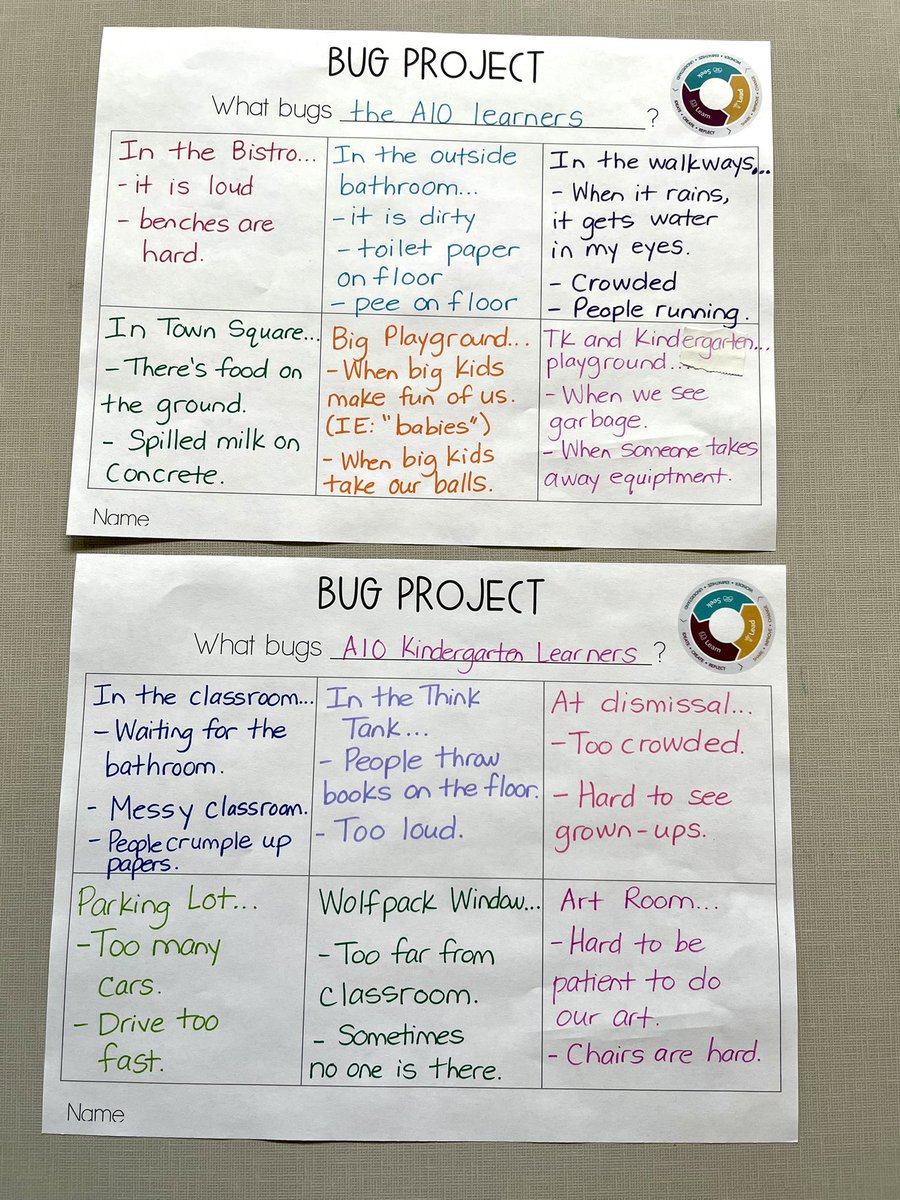 BUG PROJECT
What bugs the A10 learners ?
Seek
Lead
Learn
In the Bistro...
- it is loud
- benches are
hard.
In the outside
bathroom...
- it is dirty
- toilet paper
on floor
- pee on floor
In the walkways...
- When it rains,
it gets water
in my eyes.
- Crowded
- People running.
In Town Square...
- There's food on
the ground.
- Spilled milk on
Concrete.
Big Playground...
- When big kids
make fun of us.
(IE: "babies")
- When big kids
take our balls.
TK and Kindergarten...
playground...
- When we see
garbage.
- When someone takes
away equiptment.
Name
BUG PROJECT
What bugs A10 Kindergarten Learners ?
Seek
Lead
Learn
In the classroom...
- Waiting for the
bathroom.
- Messy classroom.
- People crumple up
papers.
In the Think
Tank...
- People throw
books on the floor.
- Too loud.
At dismissal...
- Too crowded.
- Hard to see
grown-ups.
Parking Lot...
- Too many
cars.
- Drive too
fast.
Wolfpack Window...
- Too far from
classroom.
- Sometimes
no one is there.
Art Room...
- Hard to be
patient to do
our art.
- Chairs are hard.
Name